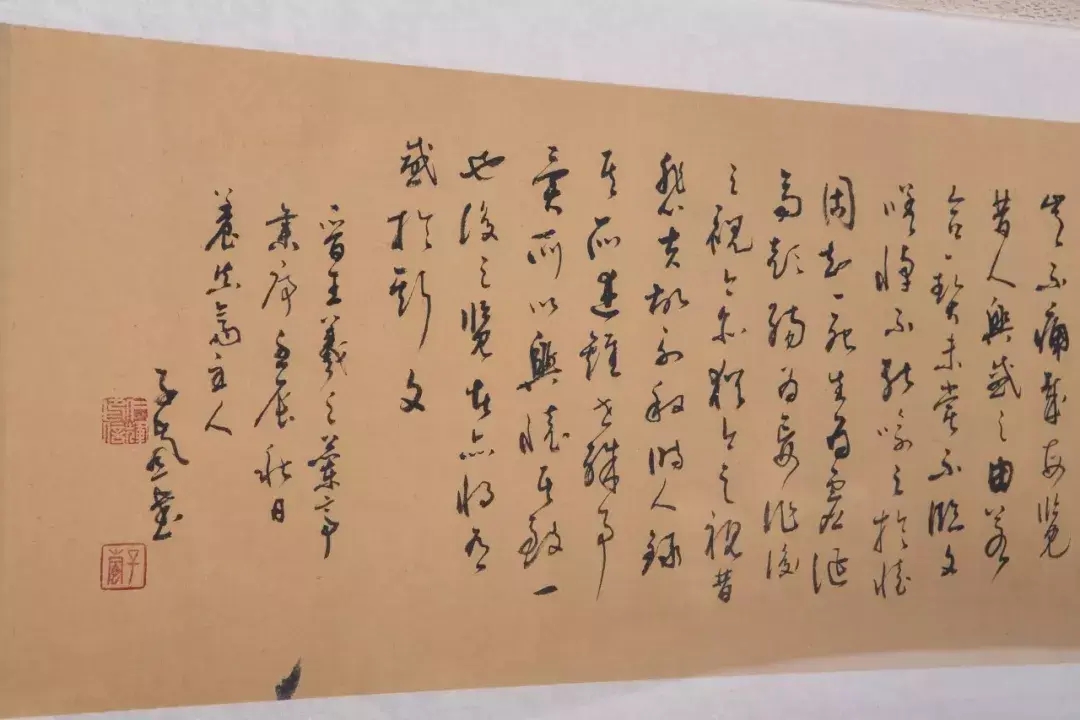 豈不痛哉每覽
昔人興感之由若
合一契未嘗不臨文
嗟悼不能喻之於懷
固知一死生為虛誕
齊彭殤為妄作後
之視今亦猶今之視昔
悲夫故列敘時人錄
其所述雖世殊事
異所以興懷其致一
也後之覽者亦將有
感於斯文
晉王羲之蘭亭
集序 辰秋日
養 齋主人
子 書